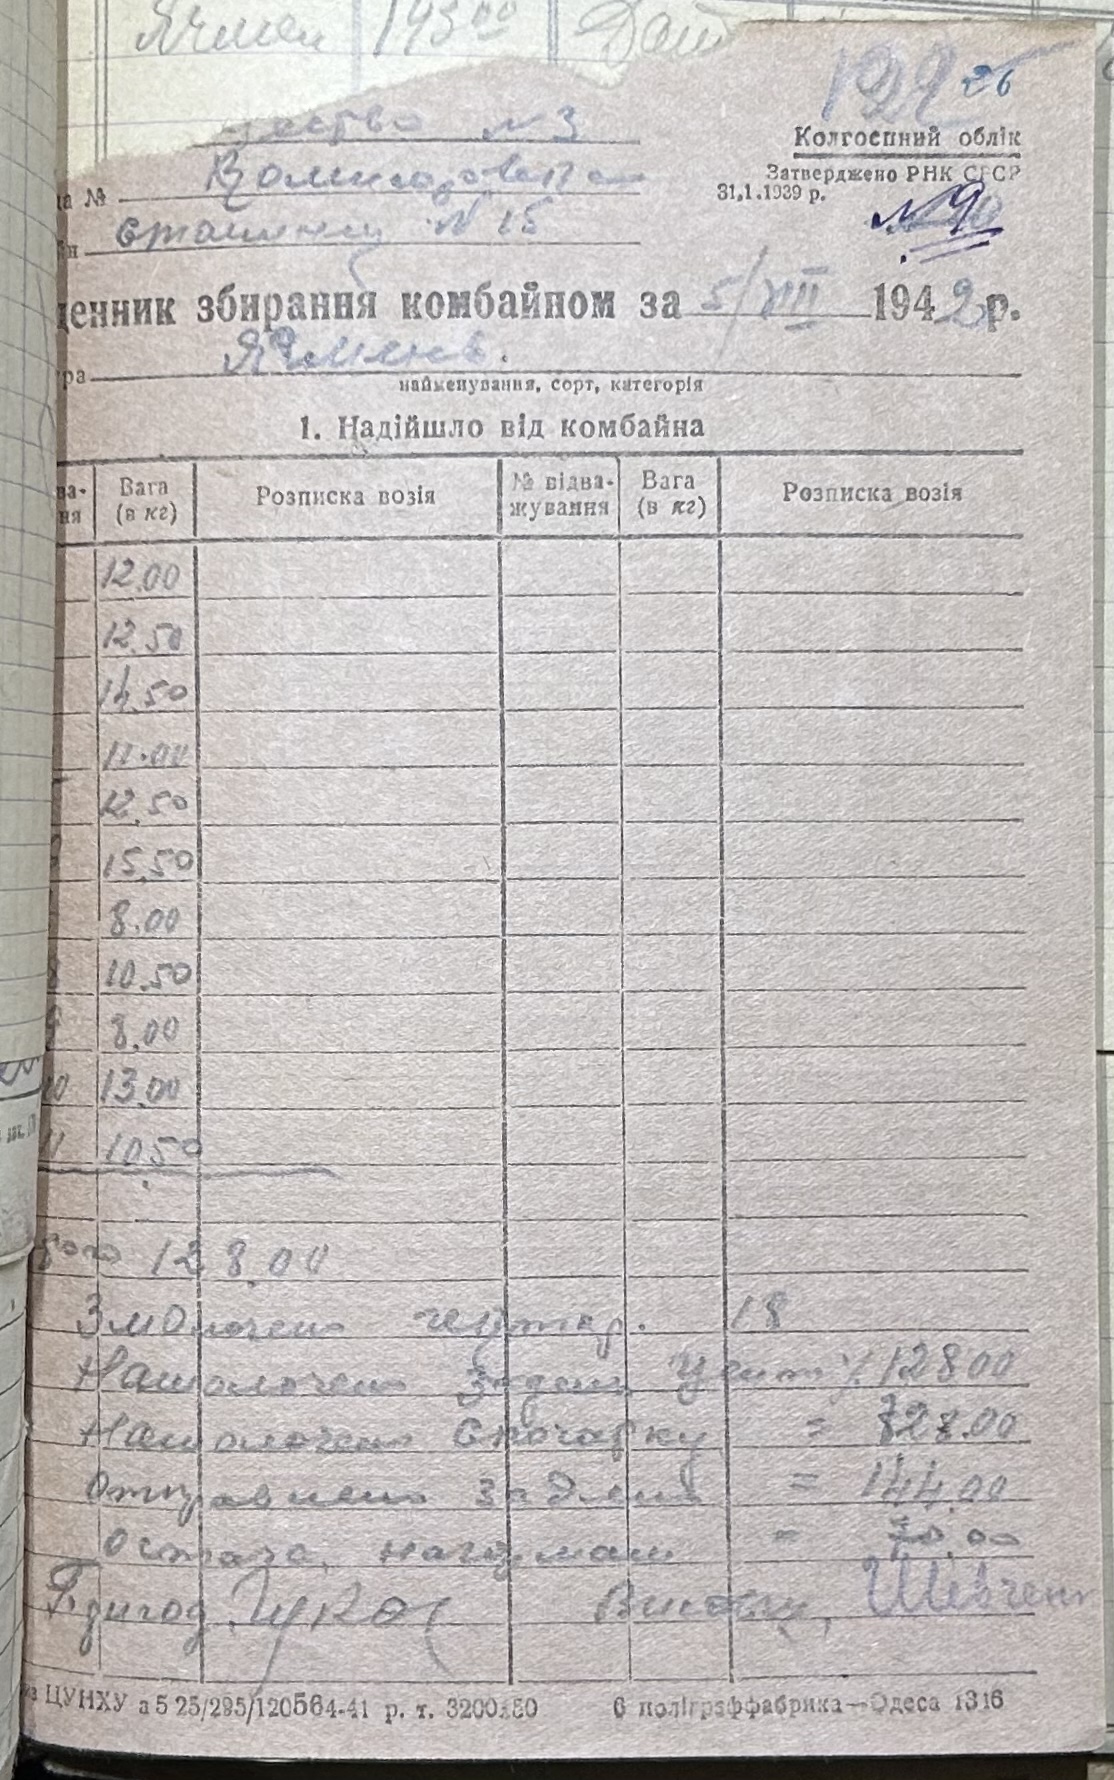 Ячмен 145 00
122 26
№ 3
Колгоспний облік
Затверджено РНК СРСР
31,1.1939 р.
№ 9
№
№ 15
денник збирання комбайном за 5/VIII 1942 р.
ра Ячмень.
найменування, сорт, категорія
1. Надійшло від комбайна
ва-ня Вага (в кг) Розписка возія № відва-жування Вага (в кг) Розписка возія
12.00
12.50
14.50
11.00
12.50
15.50
8.00
8 10.50
9 8.00
10 13.00
11 10.50
128.00
Змолочено гектар. 18
Намолочено за день цент. 128.00
Намолочено спочатку =
отправлено за день = 144.00
остача
Бригад. Висовщ. Шевченк
ЦУНХУ а 5 25/295/120564-41 р. т. 3200×50 6 поліграффабрика—Одеса 1316